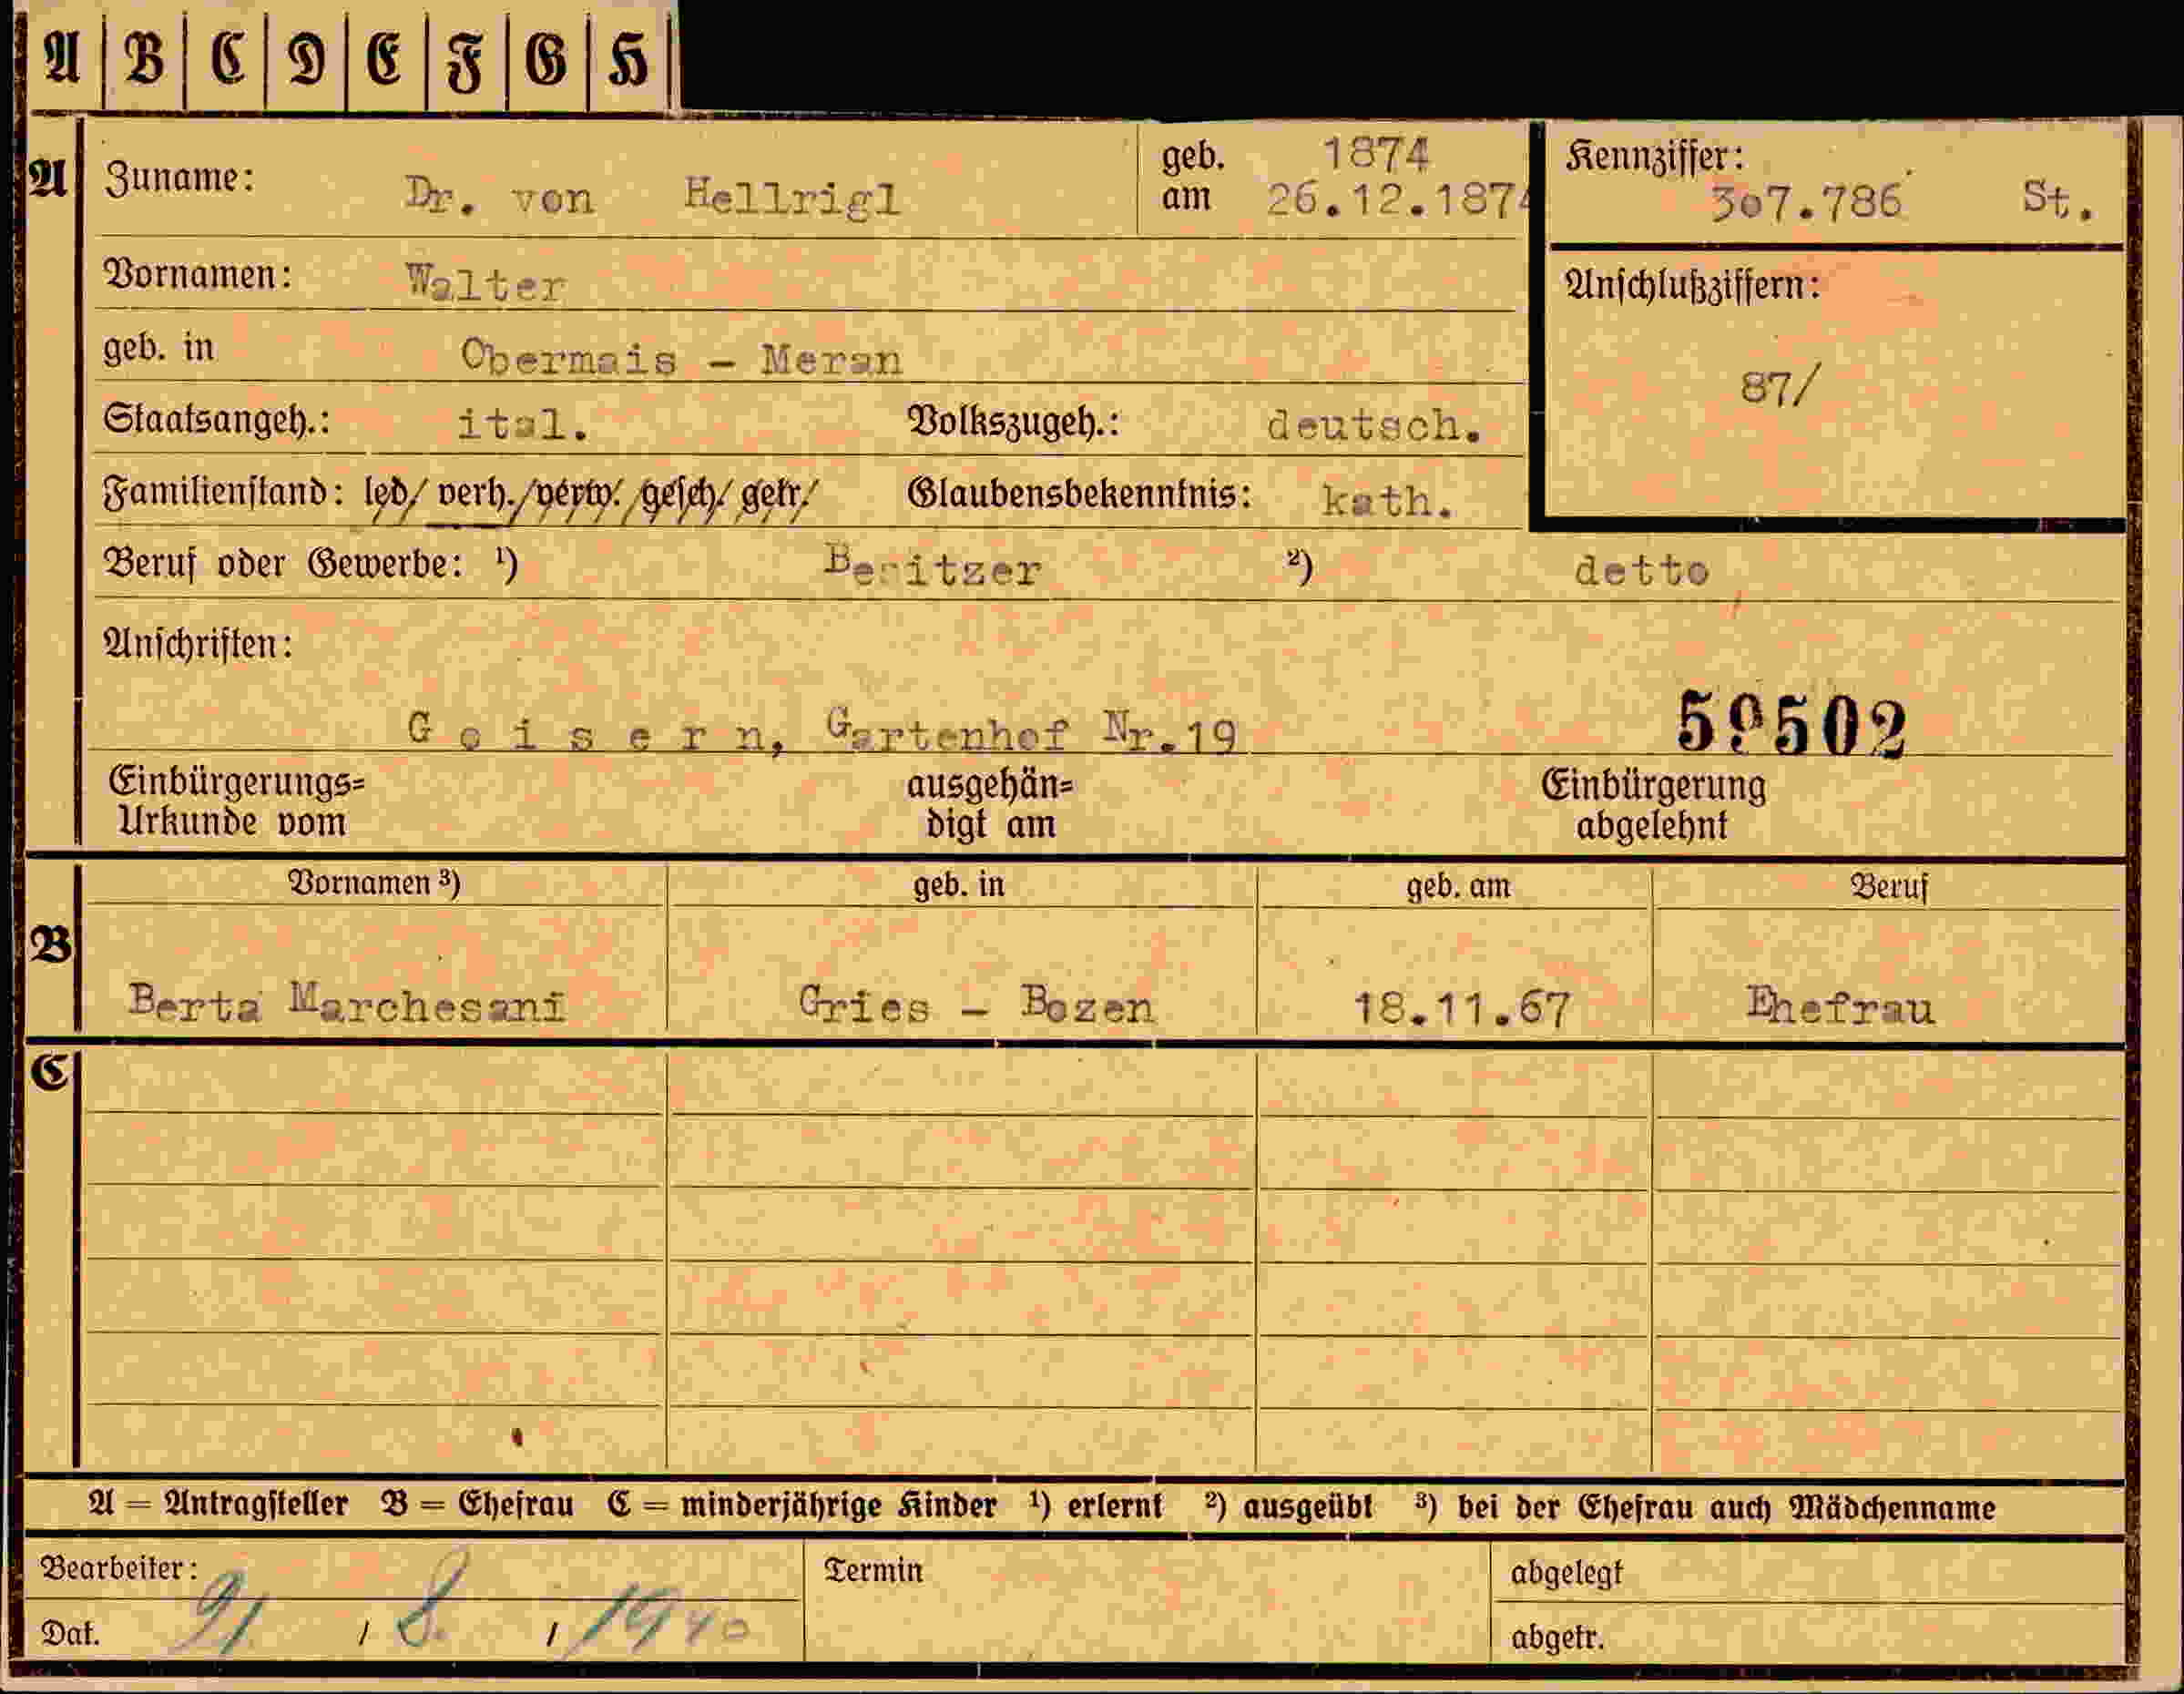 A B C D E F G H
A Zuname: Dr. von Hellrigl geb. am 1874 26.12.1874 Kennziffer: 307.786 St.
Vornamen: Walter Anschlußziffern:
geb. in Obermais - Meran 87/
Staatsangeh.: ital. Volkszugeh.: deutsch.
Familienstand: led/ verh./verw./gesch/ getr/ Glaubensbekenntnis: kath.
Beruf oder Gewerbe: ¹) Besitzer ²) detto
Anschriften:
G o i s e r n, Gartenhof Nr.19 59502
Einbürgerungs= ausgehän= Einbürgerung
Urkunde vom digt am abgelehnt
Vornamen ³) geb. in geb. am Beruf
B
Berta Marchesani Gries - Bozen 18.11.67 Ehefrau
C
A = Antragsteller B = Ehefrau C = minderjährige Kinder ¹) erlernt ²) ausgeübt ³) bei der Ehefrau auch Mädchenname
Bearbeiter: Termin abgelegt
Dat. / 8. / 1940 abgetr.